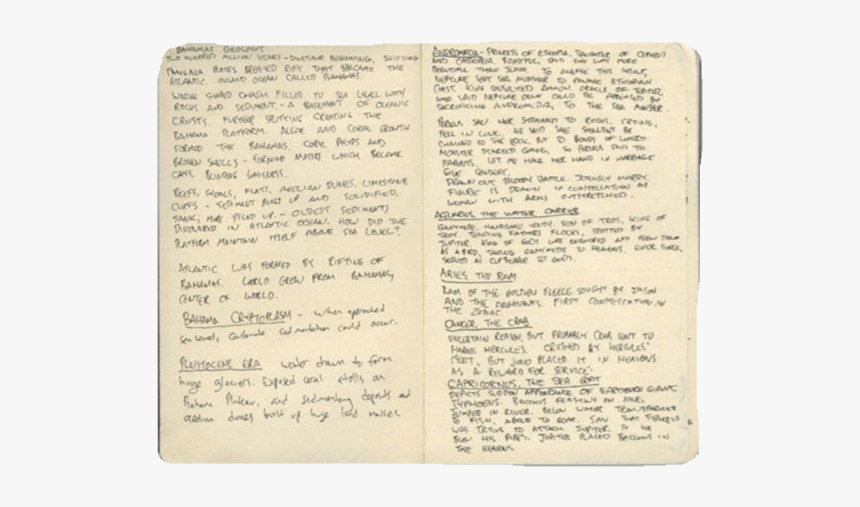 BAHAMAS GEOLOGY
TWO HUNDRED MILLION YEARS - DINOSAUR BEGINNING, SHIFTING
PANGAEA PLATES CREATED RIFT THAT BECAME THE
ATLANTIC. INLAND OCEAN CALLED BAHAMAS.
WEDGE SHAPED CHASM FILLED TO SEA LEVEL WITH
ROCKS AND SEDIMENT - A BASEMENT OF OCEANIC
CRUSTS. FURTHER SPLITTING CREATING THE
BAHAMA PLATFORM. ALGAE AND CORAL GROWTH
FORMED THE BAHAMAS. CORAL POLYPS AND
BROKEN SHELLS - FORMING MASSES WHICH BECAME
CAYS. BLINDING WHITENESS.
REEFS, SHOALS, FLATS, AEOLIAN DUNES, LIMESTONE
CLIFFS - SEDIMENT BUILT UP AND SOLIDIFIED.
SANK, MORE PILED UP. - OLDEST SEDIMENTS
DISCOVERED IN ATLANTIC OCEAN. HOW DID THE
PLATFORM MAINTAIN ITSELF ABOVE SEA LEVEL?
ATLANTIC WAS FORMED BY RIFTING OF
BAHAMAS. WORLD GREW FROM BAHAMAS,
CENTER OF WORLD.
BAHAMA CRYPTOPLASM - when operated
sea level, carbonate sedimentation could occur.
PLEISTOCENE ERA water drawn to form
huge glaciers. Exposed coral atolls on
Bahama Plateau, and sedimentary deposits and
aeolian dunes built up huge land masses
ANDROMEDA - PRINCESS OF ETHIOPIA, DAUGHTER OF CEPHEUS
AND CASSIOPEIA. BOASTFUL, SAID SHE WAS MORE
BEAUTIFUL THEN JUNO. TO AVENGE THIS INSULT,
NEPTUNE SENT SEA MONSTER TO RAVAGE ETHIOPIAN
COAST. KING CONSULTED AMMON, ORACLE OF JUPITER,
WHO SAID NEPTUNE ONLY COULD BE APPEASED BY
SACRIFICING ANDROMEDA, TO THE SEA MONSTER.
PERSEUS SAW HER STRAPPED TO ROCKS, CRYING,
FELL IN LOVE. HE SAID SHE SHOULDN'T BE
CHAINED TO THE ROCK, BUT TO BONDS OF LOVERS.
MONSTER STARTED COMING, SO PERSEUS SAID TO
PARENTS, LET ME HAVE HER HAND IN MARRIAGE
GIVE CONSENT.
DRAWN OUT BLOODY BATTLE. MARRY.
FIGURE IS DRAWN IN CONSTELLATION AS
WOMAN WITH ARMS OUTSTRETCHED.
AQUARIUS THE WATER CARRIER
GANYMEDE, HANDSOME YOUTH, SON OF TROS, KING OF
TROY. TENDING FATHERS FLOCKS, SPOTTED BY
JUPITER. KING OF GODS WAS ENAMORED AND FLEW DOWN
AS A BIRD, TAKING GANYMEDE TO HEAVENS. EVER SINCE,
SERVED AS CUPBEARER TO GODS.
ARIES THE RAM
RAM OF THE GOLDEN FLEECE SOUGHT BY JASON
AND THE ARGONAUTS. FIRST CONSTELLATION IN
THE ZODIAC.
CANCER THE CRAB
UNCERTAIN REASON, BUT PROBABLY CRAB SENT TO
HARM HERCULES. CRUSHED BY HERCULES'
FEET, BUT JUNO PLACED IT IN HEAVENS
AS A REWARD FOR SERVICE.
CAPRICORNUS, THE SEA GOAT
DEPICTS SUDDEN APPEARANCE OF EARTHBORN GIANT,
TYPHOEUS. BACCHUS FEASTING ON NILE,
JUMPED IN RIVER. BELOW WATER TRANSFORMED
TO FISH, ABOVE TO GOAT. SAW THAT TYPHOEUS
WAS TRYING TO ATTACK JUPITER SO HE
BLEW HIS PIPES. JUPITER PLACED BACCHUS IN
THE HEAVENS.